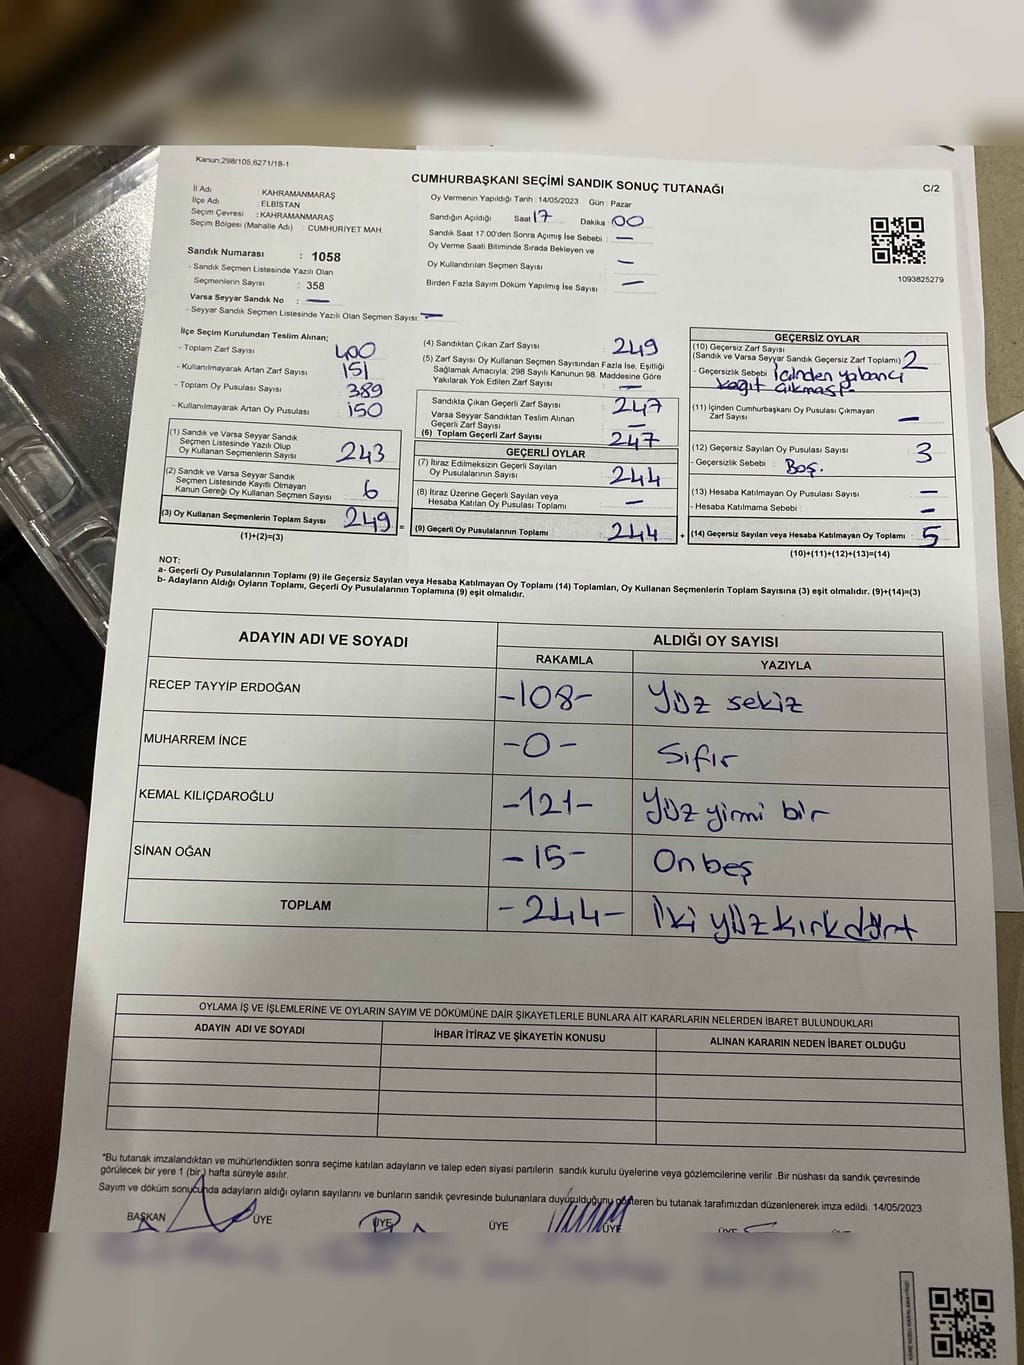 Kanun,298/105,6271/18-1
CUMHURBAŞKANI SEÇİMİ SANDIK SONUÇ TUTANAĞI
C/2
İl Adı : KAHRAMANMARAŞ
İlçe Adı : ELBİSTAN
Seçim Çevresi : KAHRAMANMARAŞ
Seçim Bölgesi (Mahalle Adı) : CUMHURİYET MAH
Sandık Numarası : 1058
- Sandık Seçmen Listesinde Yazılı Olan
Seçmenlerin Sayısı : 358
Varsa Seyyar Sandık No : —
- Seyyar Sandık Seçmen Listesinde Yazılı Olan Seçmen Sayısı: —
Oy Vermenin Yapıldığı Tarih : 14/05/2023 Gün : Pazar
Sandığın Açıldığı Saat 17 Dakika : 00
Sandık Saat 17:00'den Sonra Açımış İse Sebebi : —
Oy Verme Saati Bitiminde Sırada Bekleyen ve
Oy Kullandırılan Seçmen Sayısı : —
Birden Fazla Sayım Döküm Yapılmış İse Sayısı : —
1093825279
İlçe Seçim Kurulundan Teslim Alınan;
- Toplam Zarf Sayısı : 400
- Kullanılmayarak Artan Zarf Sayısı : 151
- Toplam Oy Pusulası Sayısı : 389
- Kullanılmayarak Artan Oy Pusulası : 150
(1) Sandık ve Varsa Seyyar Sandık
Seçmen Listesinde Yazılı Olup
Oy Kullanan Seçmenlerin Sayısı : 243
(2) Sandık ve Varsa Seyyar Sandık
Seçmen Listesinde Kayıtlı Olmayan
Kanun Gereği Oy Kullanan Seçmen Sayısı : 6
(3) Oy Kullanan Seçmenlerin Toplam Sayısı : 249 =
(1)+(2)=(3)
(4) Sandıktan Çıkan Zarf Sayısı : 249
(5) Zarf Sayısı Oy Kullanan Seçmen Sayısından Fazla İse, Eşitliği
Sağlamak Amacıyla, 298 Sayılı Kanunun 98. Maddesine Göre
Yakılarak Yok Edilen Zarf Sayısı : —
Sandıkta Çıkan Geçerli Zarf Sayısı : 247
Varsa Seyyar Sandıktan Teslim Alınan
Geçerli Zarf Sayısı : —
(6) Toplam Geçerli Zarf Sayısı : 247
GEÇERLİ OYLAR
(7) İtiraz Edilmeksizin Geçerli Sayılan
Oy Pusulalarının Sayısı : 244
(8) İtiraz Üzerine Geçerli Sayılan veya
Hesaba Katılan Oy Pusulası Toplamı : —
(9) Geçerli Oy Pusulalarının Toplamı : 244 +
GEÇERSİZ OYLAR
(10) Geçersiz Zarf Sayısı
(Sandık ve Varsa Seyyar Sandık Geçersiz Zarf Toplamı) : 2
- Geçersizlik Sebebi : İçinden yabancı
kağıt çıkması
(11) İçinden Cumhurbaşkanı Oy Pusulası Çıkmayan
Zarf Sayısı : —
(12) Geçersiz Sayılan Oy Pusulası Sayısı : 3
- Geçersizlik Sebebi : Boş.
(13) Hesaba Katılmayan Oy Pusulası Sayısı : —
- Hesaba Katılmama Sebebi : —
(14) Geçersiz Sayılan veya Hesaba Katılmayan Oy Toplamı : 5
(10)+(11)+(12)+(13)=(14)
NOT:
a- Geçerli Oy Pusulalarının Toplamı (9) ile Geçersiz Sayılan veya Hesaba Katılmayan Oy Toplamı (14) Toplamları, Oy Kullanan Seçmenlerin Toplam Sayısına (3) eşit olmalıdır. (9)+(14)=(3)
b- Adayların Aldığı Oyların Toplamı, Geçerli Oy Pusulalarının Toplamına (9) eşit olmalıdır.
ADAYIN ADI VE SOYADI
ALDIĞI OY SAYISI
RAKAMLA YAZIYLA
RECEP TAYYİP ERDOĞAN -108- Yüz sekiz
MUHARREM İNCE -0- Sıfır
KEMAL KILIÇDAROĞLU -121- Yüz yirmi bir
SİNAN OĞAN -15- On beş
TOPLAM -244- İki yüz kırk dört
OYLAMA İŞ VE İŞLEMLERİNE VE OYLARIN SAYIM VE DÖKÜMÜNE DAİR ŞİKAYETLERLE BUNLARA AİT KARARLARIN NELERDEN İBARET BULUNDUKLARI
ADAYIN ADI VE SOYADI İHBAR İTİRAZ VE ŞİKAYETİN KONUSU ALINAN KARARIN NEDEN İBARET OLDUĞU
*Bu tutanak imzalandıktan ve mühürlendikten sonra seçime katılan adayların ve talep eden siyasi partilerin sandık kurulu üyelerine veya gözlemcilerine verilir .Bir nüshası da sandık çevresinde
görülecek bir yere 1 (bir ) hafta süreyle asılır.
Sayım ve döküm sonucunda adayların aldığı oyların sayılarını ve bunların sandık çevresinde bulunanlara duyurulduğunu gösteren bu tutanak tarafımızdan düzenlenerek imza edildi. 14/05/2023
BAŞKAN ÜYE ÜYE ÜYE ÜYE ÜYE